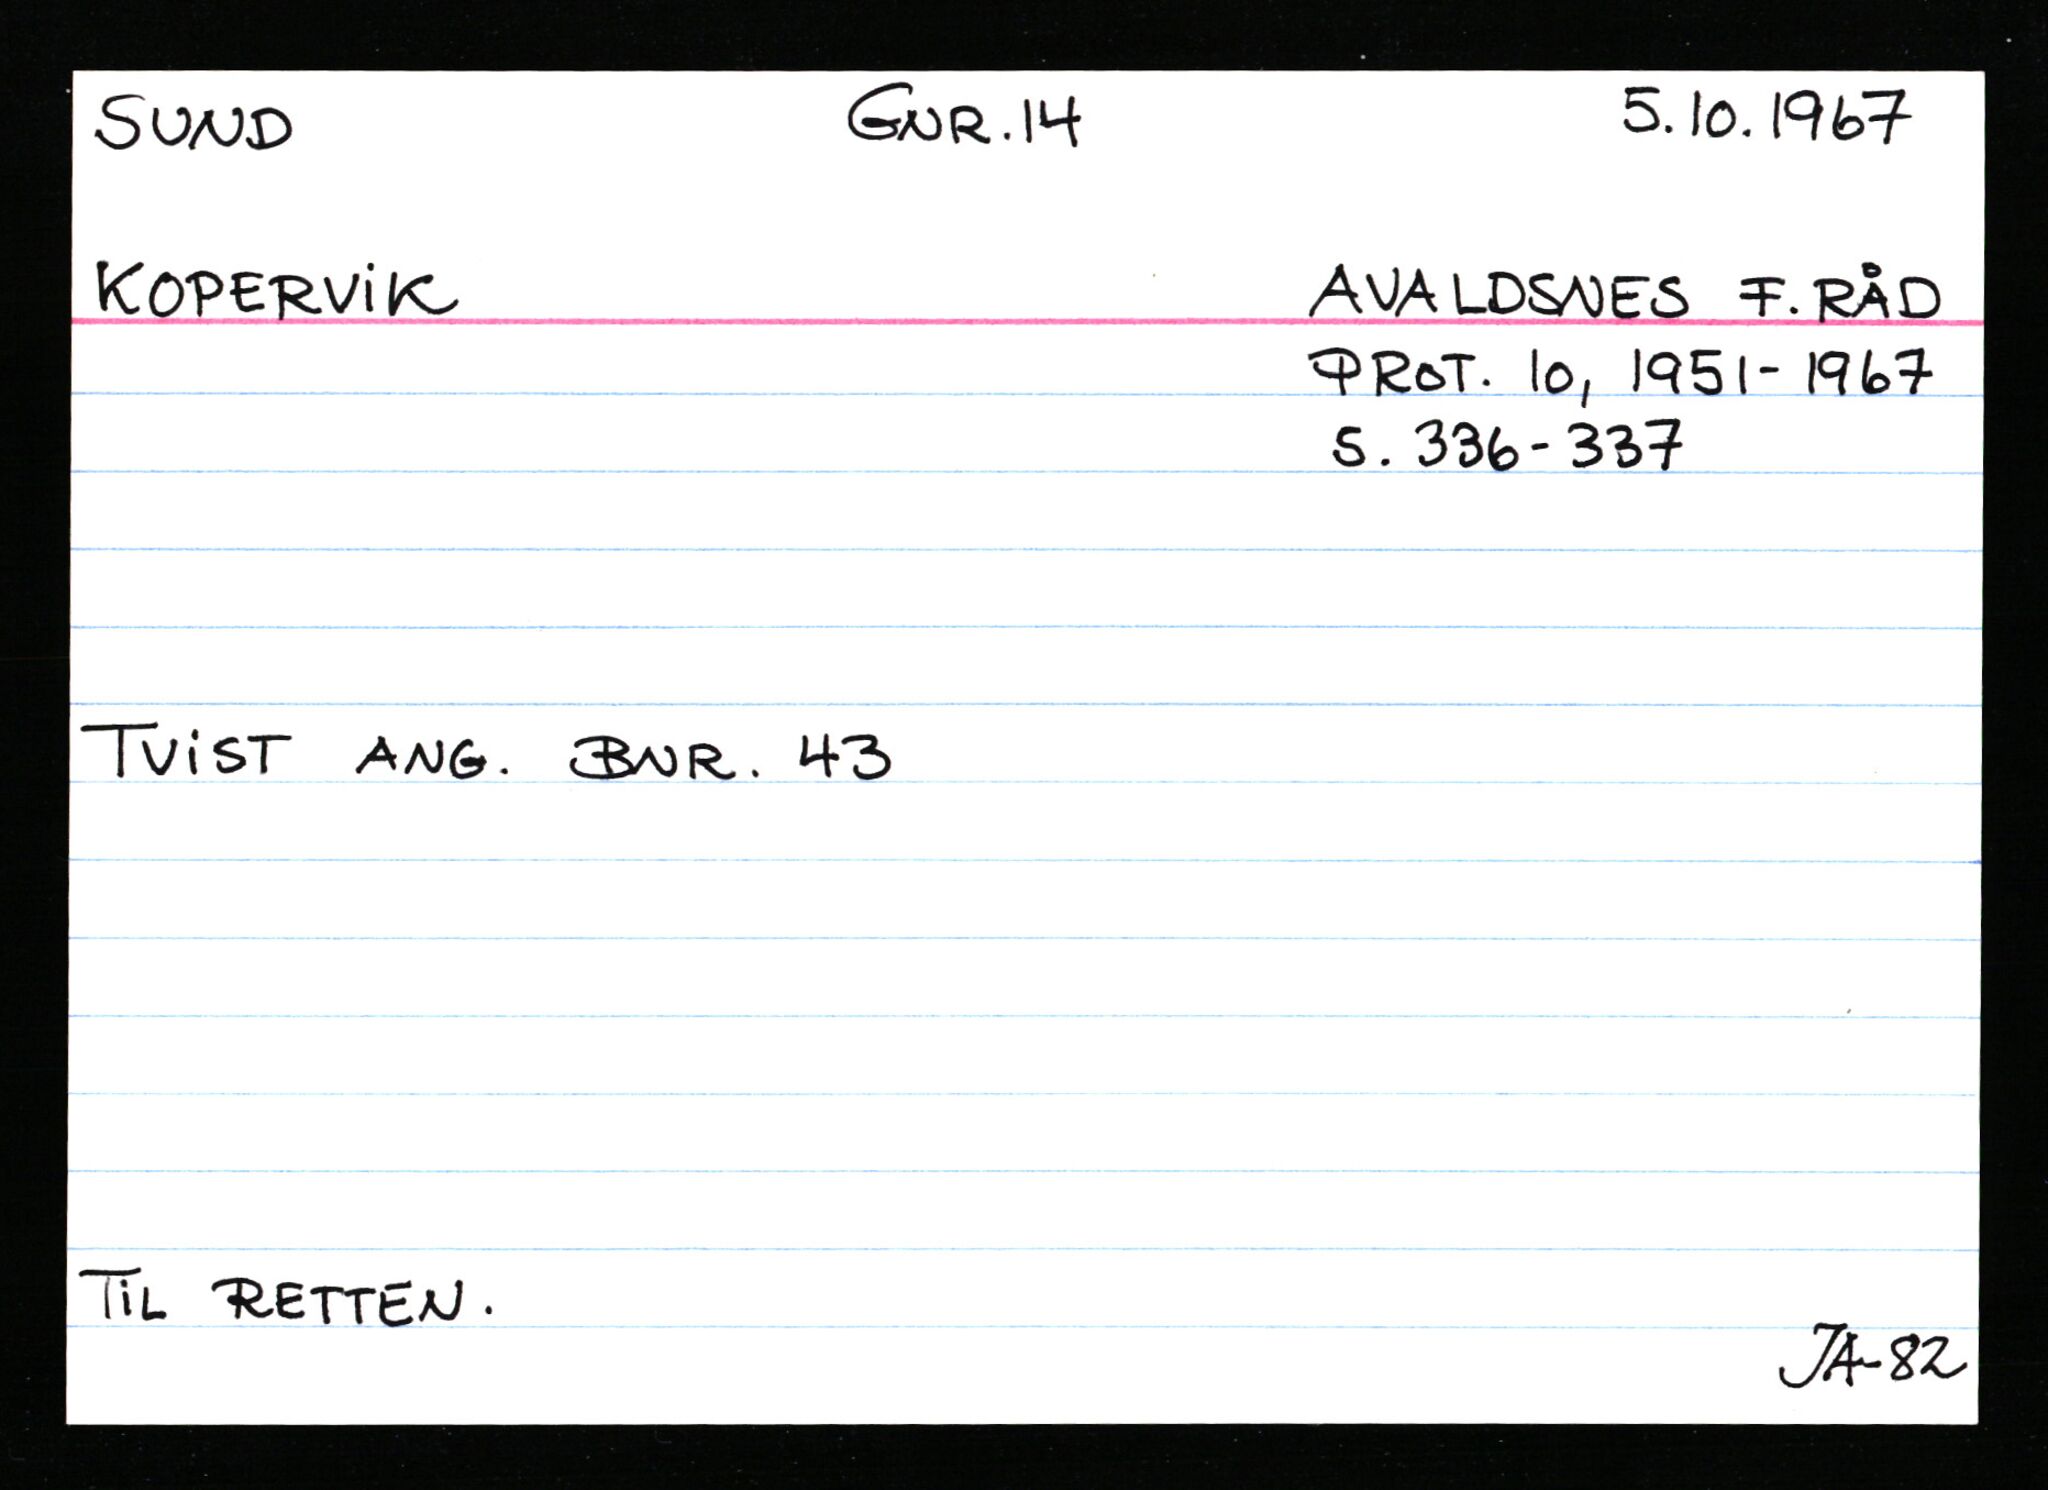 SUND GNR.14 5.10.1967
KOPERVIK AVALDSNES F.RÅD
PROT. 10, 1951-1967
S. 336-337
TVIST ANG. BNR. 43
TIL RETTEN.
JA-82